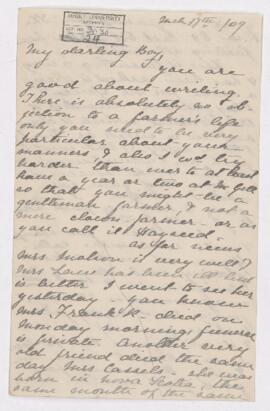 McGILL UNIVERSITY
ARCHIVES
March 17th /09
My darling Boy,
you are
good about writing.
There is absolutely no ob-
jection to a farmer's life
only you need to be very
particular about your
manners & also I wd try
harder than ever to at least
have a year or two at McGill
so that you might be a
gentleman farmer, & not a
mere clown farmer or as
you call it Hayseed
as for news
Mrs Molson is very well &
Mrs Law has been ill but
is better I went to see her
yesterday - you know
Mrs Frank K - died on
Monday morning funeral
is private Another very
old friend died the same
day Mrs Cassels - she was
born in Nova Scotia, the
same month of the same